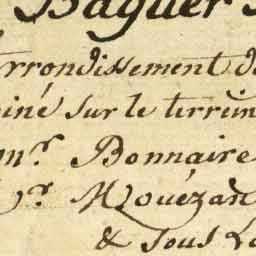 Baguer
rrondissement d
iné sur le terrein
mr. Bonnaire
r. Mouëzan
& sous L